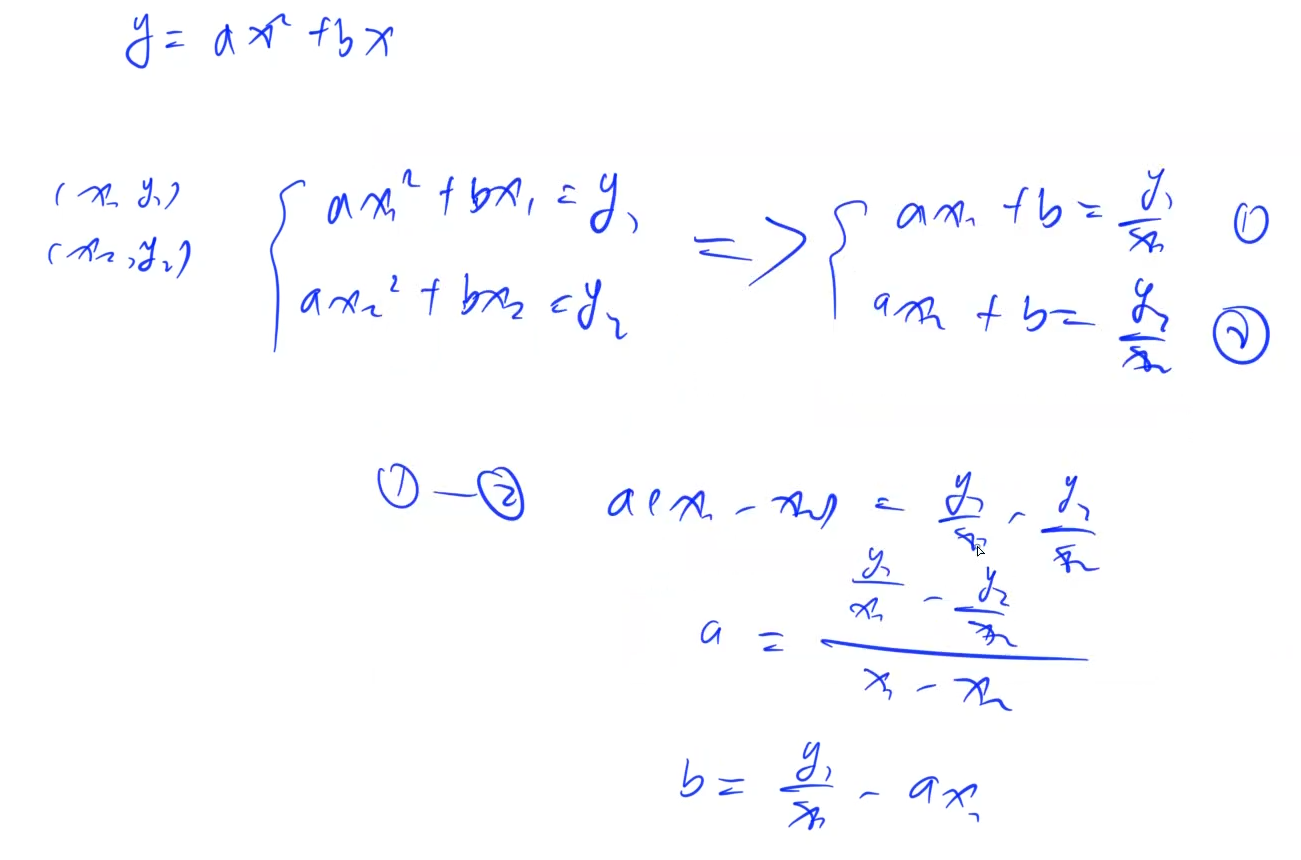 y = ax² + bx
(x₁ y₁)
(x₂, y₂)
{ ax₁² + bx₁ = y₁
ax₂² + bx₂ = y₂
=> { ax₁ + b = y₁/x₁ ①
ax₂ + b = y₂/x₂ ②
① — ② a(x₁ - x₂) = y₁/x₁ - y₂/x₂
a = (y₁/x₁ - y₂/x₂)/(x₁ - x₂)
b = y₁/x₁ - ax₁